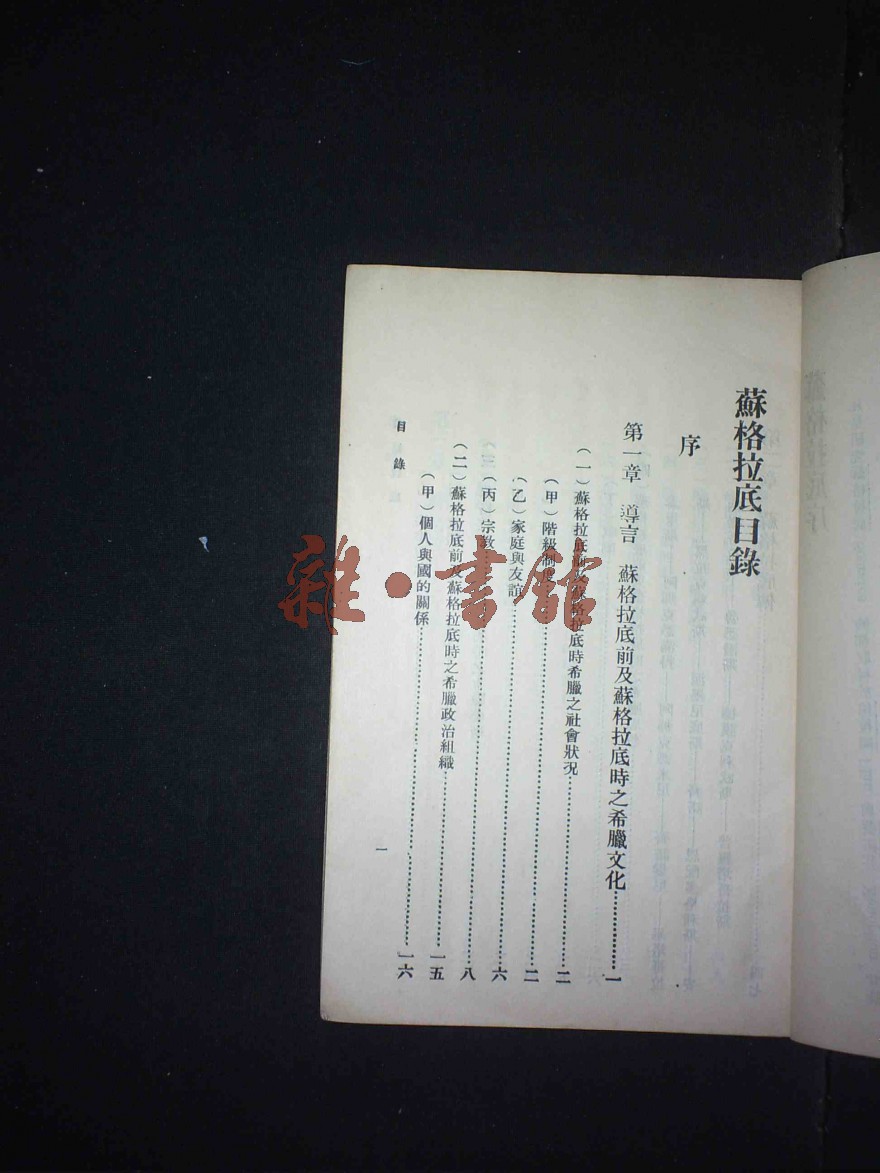 蘇格拉底目錄
序
第一章　導言　蘇格拉底前及蘇格拉底時之希臘文化……一
（一）蘇格拉底前及蘇格拉底時希臘之社會狀況……二
（甲）階級制度……二
（乙）家庭與友誼……六
（丙）宗教……八
（二）蘇格拉底前及蘇格拉底時之希臘政治組織……一五
（甲）個人與國的關係……一六
目錄
一
雜·書館
蘇格拉底序